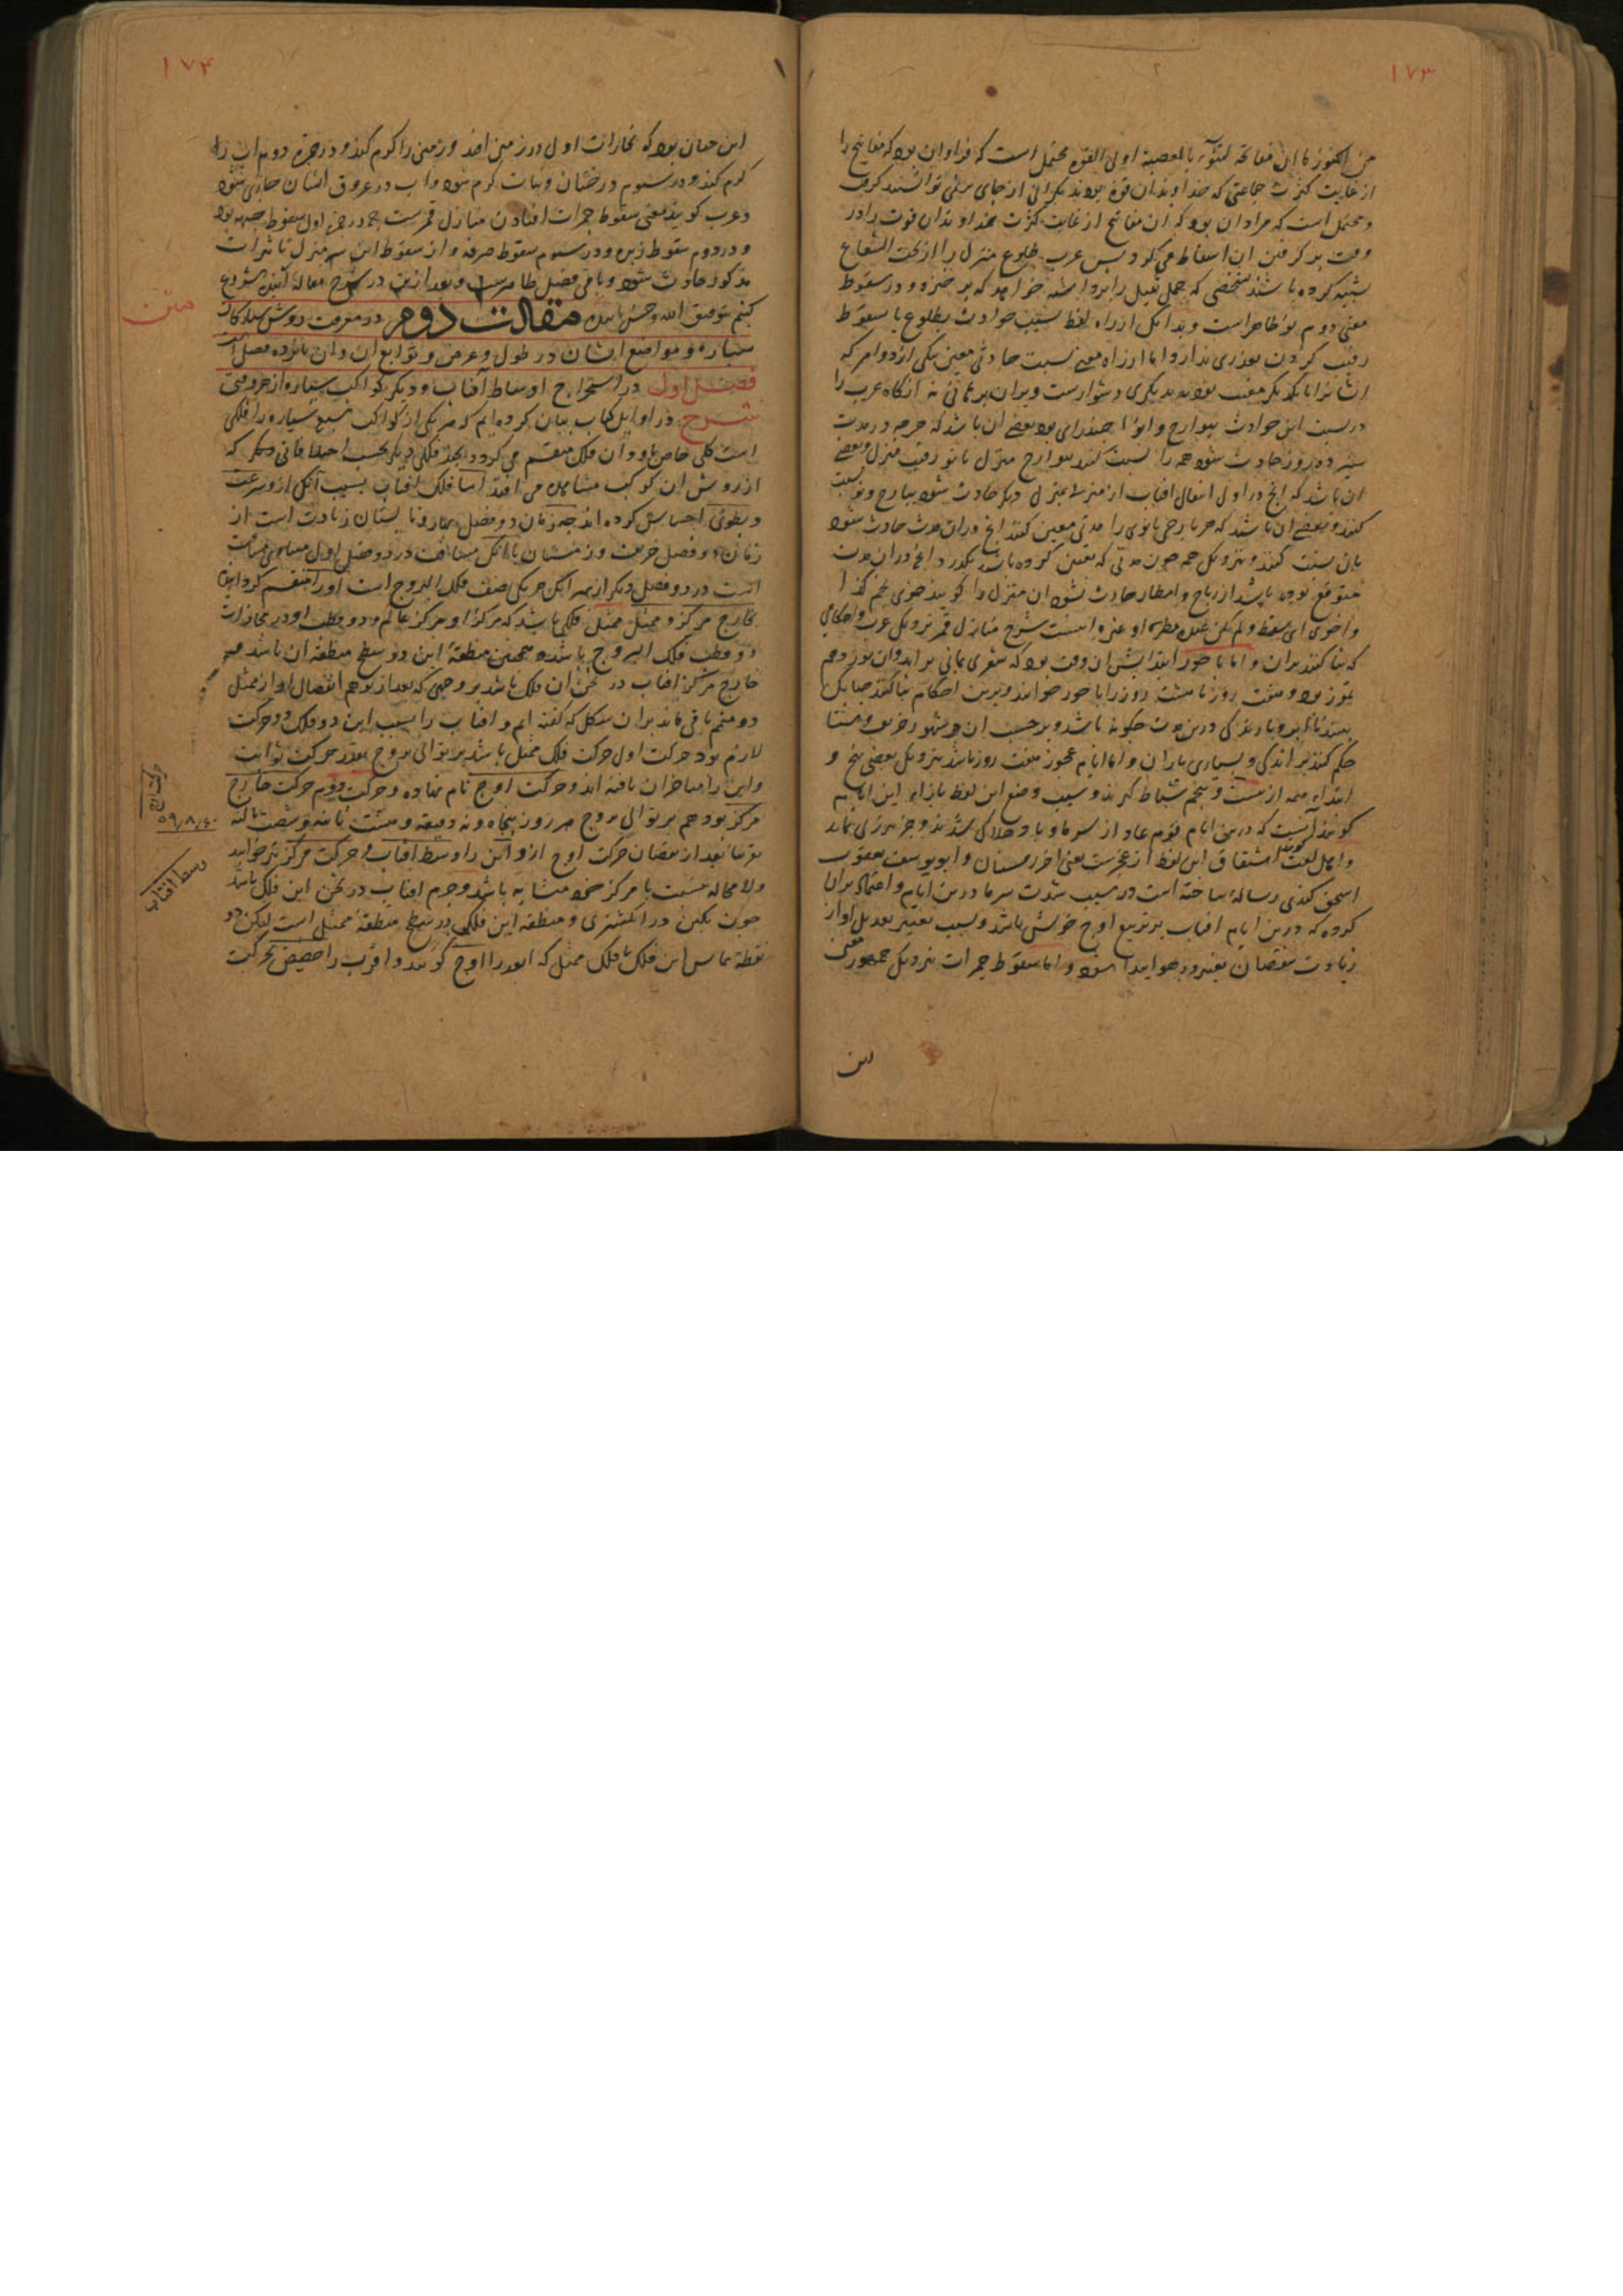 ۱۷۳
من الکنوز ما ان مفاتحه لتنوء بالعصبة اولی القوة محتمل است که فراوان بود که مفاتیح را
از غایت کثرت جماعتی که خداوندان قوة بودند از جای برنمی توانستند گرفت
و محتمل است که مراد آن بود که ان مفاتیح از غایت کثرت خداوندان قوت را در
وقت برگرفتن ان اسقاط می کرد پس عرب طلوع منزل را از تحت الشعاع
شبیه کرده باشند بشخصی که حمل ثقیل را برداشته خواهد که برخیزد و در سقوط
معنی دوم نوء ظاهر است و بدانک از راه لفظ سبب حوادث بطلوع یا سقوط
رقیب کردن بعدی ندارد اما از راه معنی نسبت حادثی معین بیکی از دو امر که
ایشانرا با یکدیگر معیت بود نه بدیگری دشوارست و بران برهانی نه آنگاه عرب را
در نسبت این حوادث ببوارح و انوا چند رای بود بعضی ان باشد که هرچه در مدت
سیزده روز حادث شود همه را نسبت کنند ببوارح منزل یا نو رقیب منزل و بعضی
ان باشد که انچ در اول انتقال افتاب از منزلی بمنزلی دیگر حادث شود ببارح و نو نسبت
کنند و بعضی ان باشد که هر بارحی یا نوی را مدتی معین کنند انچ دران مدت حادث شود
بان نسبت کنند و نزدیک همه چون مدتی که تعیین کرده باشند بگذرد و انچ دران مدت
متوقع بوده باشد از ریاح و امطار حادث نشود ان منزل را گویند خوی نجم کذا
و اخوی ای سقط و لم یکن عنده مطر او غیره اینست شرح منازل قمر نزدیک عرب و احکامی
که بنا کنند بران و اما باحور ابتدایش ان وقت بود که شعری یمانی براید و ان نوزدهم
تموز بود و هفت روز تا هشت روز را باحور خوانند و برین احکام بنا کنند چنانک
بینند تا ابر و باد و تری درین مدت چگونه باشد و بر حسب ان در شهور خریف و شتا
حکم کنند بر اندکی و بسیاری باران و اما ایام عجوز هفت روز باشد نزدیک بعضی پنج و
ابتداء همه از بیست و پنجم شباط گیرند و سبب وضع این لفظ بازاء این ایام
گویند آنست که درین ایام قوم عاد از سرما و باد هلاک شدند و جز پیرزنی نماند
و اهل لغت گویند اشتقاق این لفظ از عجزست یعنی اخر زمستان و ابو یوسف یعقوب
اسحق کندی رساله ساخته است در سبب شدت سرما درین ایام و اعتماد بران
کرده که درین ایام افتاب بر تربیع اوج خویش باشد و بسبب تغییر تعدیل او از
زیادت بنقصان تغیر در هوا پیدا شود و اما سقوط جمرات نزدیک جمهور معنی
این
۱۷۴
این چنان بود که بخارات اول در زمین افتد و زمین را گرم کند و در جمره دوم آب را
گرم کند و در سیوم درختان و نبات گرم شود و آب در عروق ایشان جاری شود
و عرب گویند معنی سقوط جمرات افتادن منازل قمرست چه در جمره اول سقوط جبهه بود
و در دوم سقوط زبره و در سیوم سقوط صرفه و از سقوط این سه منزل تاثیرات
مذکور حادث شود و باقی فصل ظاهرست و بعد ازین در شرح مقاله آینده شروع
کنیم بتوفیق الله و حسن تاییده مقالت دوم در معرفت روش ستارگان
متن
سیاره و مواضع ایشان در طول و عرض و توابع ان و ان پانزده فصل است
فصل اول در استخراج اوساط آفتاب و دیگر کواکب سیاره از هر وقتی
شرح در اوایل کتاب بیان کرده ایم که هر یکی از کواکب سبع سیاره را فلکی
است کلی خاص باو و ان فلک منقسم می گردد بچند فلکی دیگر بحسب اختلافاتی دیگر که
از روش ان کوکب مشاهده می افتد اما فلک افتاب بسبب آنک ازو سرعت
و بطوی احساس کرده اند چه زمان دو فصل بهار و تابستان زیادت است از
زمان دو فصل خریف و زمستان با آنک مسافت در دو فصل اول مساوی مسافت
است در دو فصل دیگر از بهر آنک هر یکی نصف فلک البروج است او را منقسم کرداند
بخارج مرکز و ممثل ممثل فلکی باشد که مرکز او مرکز عالم و دو قطب او در محاذات
دو قطب فلک البروج باشد و همچنین منطقه این در سطح منطقه ان باشد و
خارج مرکز افتاب در ثخن ان فلک باشد بر وجهی که بعد از توهم انفصال او از ممثل
دو متمم باقی ماند بران شکل که گفته ایم و افتاب را بسبب این دو فلک دو حرکت
لازم بود حرکت اول حرکت فلک ممثل باشد بر توالی بروج بقدر حرکت ثوابت
و این را متاخران یافته اند و حرکت اوج نام نهاده و حرکت دوم حرکت خارج
مرکز بود هم بر توالی بروج هر روز پنجاه و نه دقیقه و هشت ثانیه و شصت ثالثه
تقریبا بعد از نقصان حرکت اوج ازو و این را وسط افتاب و حرکت مرکز نیز خوانند
ولا محاله بنسبت با مرکز خود متشابه باشد و جرم افتاب در ثخن این فلک باشد
چون نگین در انگشتری و منطقه این فلک در سطح منطقه ممثل است لیکن دو
نقطه تماس این فلک با فلک ممثل که ابعد را اوج گویند و اقرب را حضیض بحرکت
۵۹/۸/۶۰
وسط افتاب